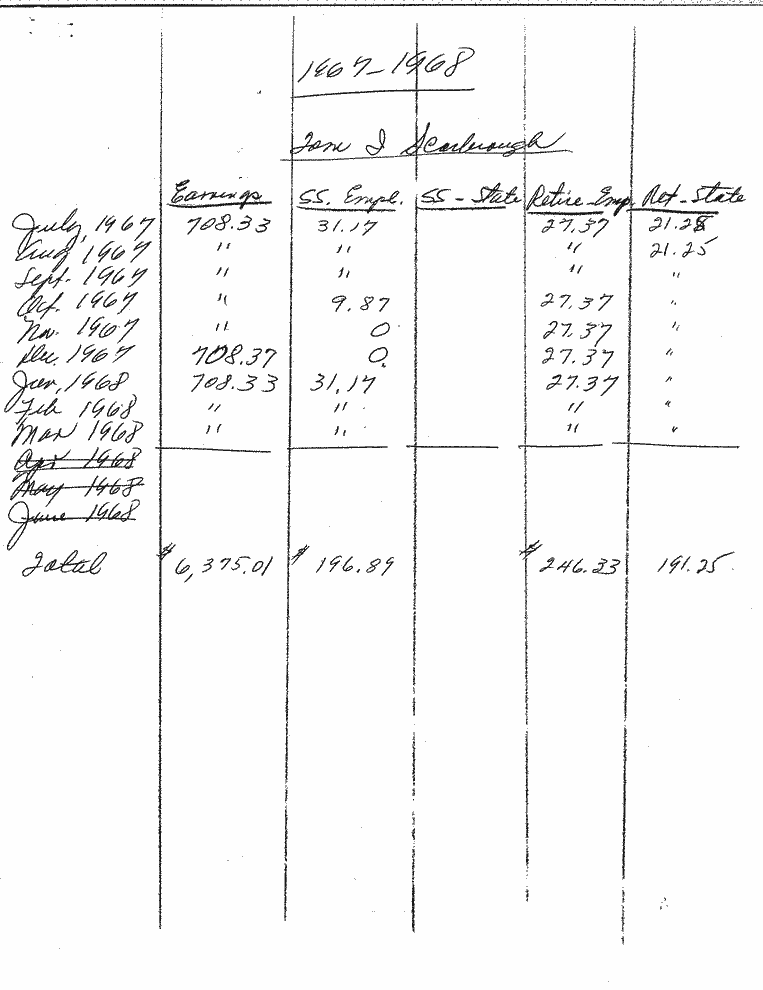 1967-1968
Tom J Scarbrough
Earnings SS. Empl. SS - State Retire Emp. Ret - State
July, 1967 708.33 31.17 27.37 21.25
Aug 1967 " " " 21.25
Sept. 1967 " " " "
Oct. 1967 " 9.87 27.37 "
Nov. 1967 " 0 27.37 "
Dec. 1967 708.37 0. 27.37 "
Jan, 1968 708.33 31.17 27.37 "
Feb 1968 " " " "
Mar 1968 " " " "
Apr 1968
May 1968
June 1968
Total $6,375.01 $196.89 $246.33 191.25